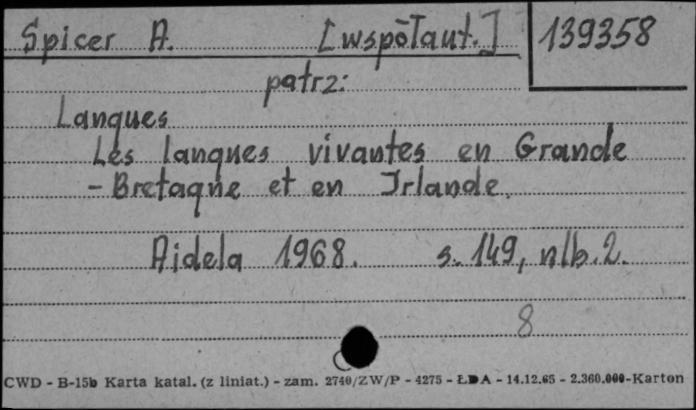 Spicer A. [współaut.] 139358
patrz:
Langues
Les langues vivantes en Grande
- Bretagne et en Irlande.
Aidela 1968. s. 149, nlb. 2.
8
CWD - B-15b Karta katal. (z liniat.) - zam. 2740/ZW/P - 4275 - ŁDA - 14.12.65 - 2.360.000-Karton